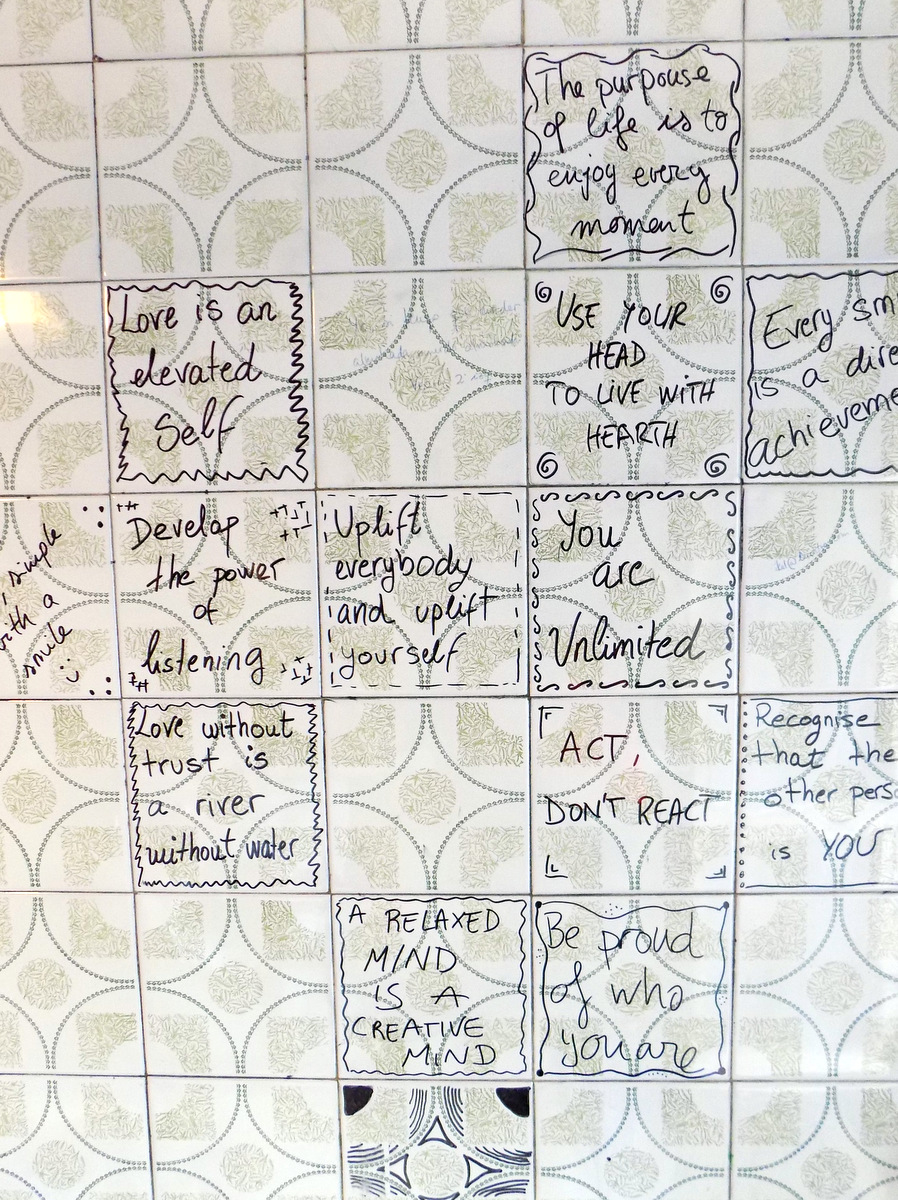 The purpouse
of life is to
enjoy every
moment
Love is an
elevated
Self
USE YOUR
HEAD
TO LIVE WITH
HEARTH
Every sm
is a dire
achieveme
simple
with a
smile
Develop
the power
of
listening
Uplift
everybody
and uplift
yourself
You
are
Unlimited
Love without
trust is
a river
without water
ACT,
DON'T REACT
Recognise
that the
other pers
is YOU
A RELAXED
MIND
IS A
CREATIVE
MIND
Be proud
of who
you are